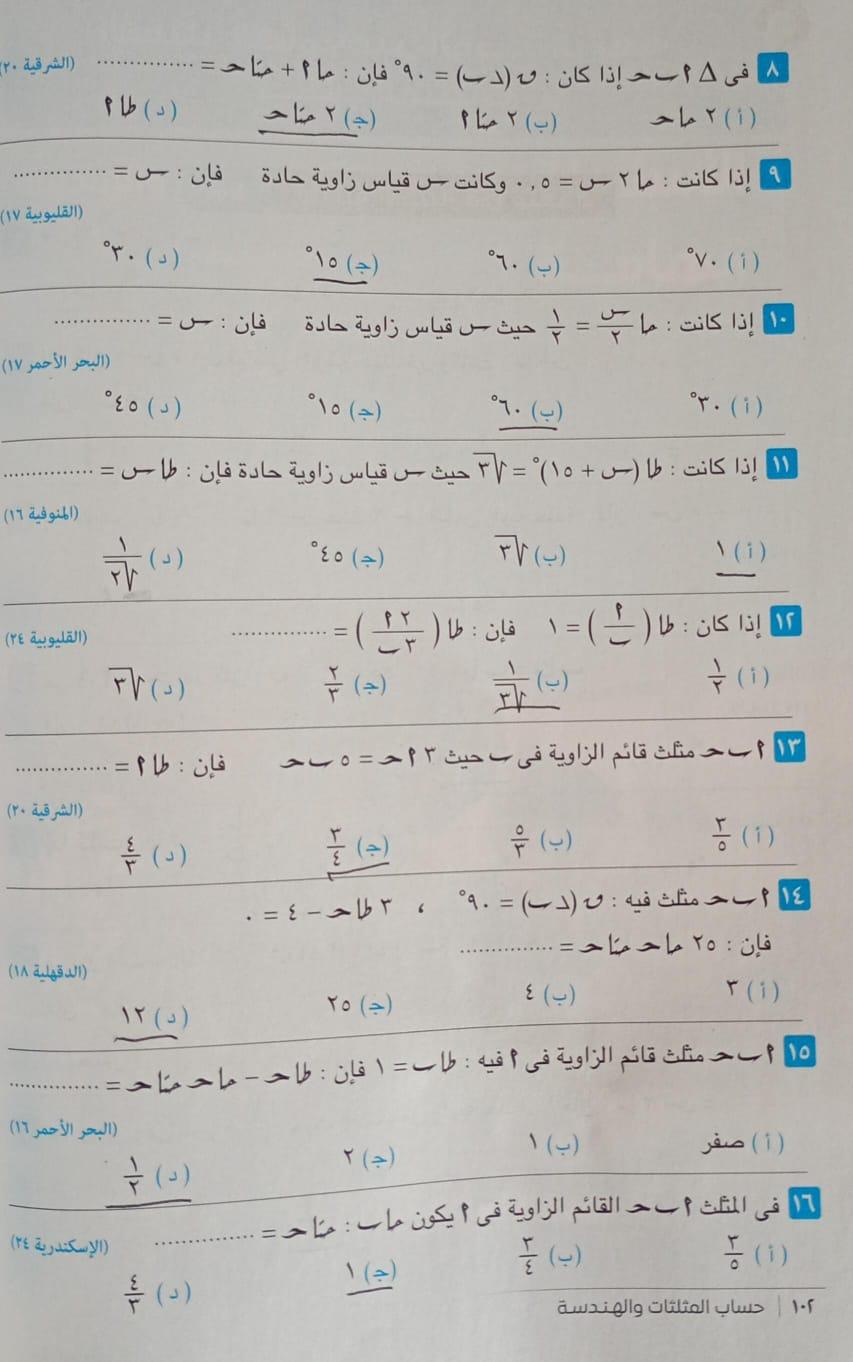 ٨ فى △ ٢ ب ح إذا كان : ن (د ب) = ٩٠° فإن : ما ٢ + منا ح = .............. (الشرقية ٢٠)
(أ) ٢ ما ح (ب) ٢ منا ٢ (ج) ٢ منا ح (د) طا ٢
٩ إذا كانت : ما ٢ س = ٠,٥ وكانت س قياس زاوية حادة فإن : س = ..............
(القليوبية ١٧)
(أ) ٧٠° (ب) ٦٠° (ج) ١٥° (د) ٣٠°
١٠ إذا كانت : ما س/٢ = ١/٢ حيث س قياس زاوية حادة فإن : س = ..............
(البحر الأحمر ١٧)
(أ) ٣٠° (ب) ٦٠° (ج) ١٥° (د) ٤٥°
١١ إذا كانت : طا (س + ١٥)° = √٣ حيث س قياس زاوية حادة فإن : طا س = ..............
(المنوفية ١٦)
(أ) ١ (ب) √٣ (ج) ٤٥° (د) ١/√٢
١٢ إذا كان : طا (٢/ب) = ١ فإن : طا (٢ ٢/٣ ب) = .............. (القليوبية ٢٤)
(أ) ١/٢ (ب) ١/√٣ (ج) ٢/٣ (د) √٣
١٣ ٢ ب ح مثلث قائم الزاوية فى ب حيث ٣ ٢ ح = ٥ ب ح فإن : طا ٢ = ..............
(الشرقية ٢٠)
(أ) ٣/٥ (ب) ٥/٣ (ج) ٣/٤ (د) ٤/٣
١٤ ٢ ب ح مثلث فيه : ن (د ب) = ٩٠° ، ٣ طا ح - ٤ = ٠
فإن : ٢٥ ما ح منا ح = ..............
(الدقهلية ١٨)
(أ) ٣ (ب) ٤ (ج) ٢٥ (د) ١٢
١٥ ٢ ب ح مثلث قائم الزاوية فى ٢ فيه : طا ب = ١ فإن : طا ح - ما ح منا ح = ..............
(البحر الأحمر ١٦)
(أ) صفر (ب) ١ (ج) ٢ (د) ١/٢
١٦ فى المثلث ٢ ب ح القائم الزاوية فى ٢ يكون ما ب : منا ح = ..............
(الإسكندرية ٢٤)
(أ) ٣/٥ (ب) ٣/٤ (ج) ١ (د) ٤/٣
١٠٢ | حساب المثلثات والهندسة